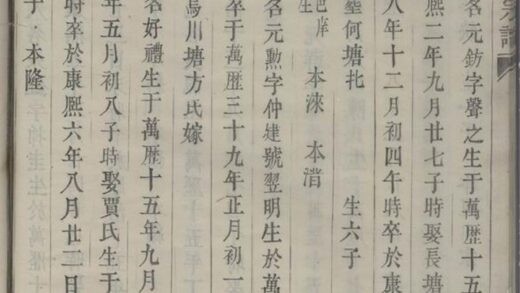 宗譜
名元鈁字聲之生于萬歷十五
熙二年九月廿七子時娶長塘
八年十二月初四午時卒於康
何塘 生六子
生 本淶 本
名元勳字仲建號翌明生於萬
卒于萬歷三十九年正月初一
川塘方氏嫁
名好禮生于萬歷十五年九月
年五月初八子時娶賈氏生于
時卒於康熙六年八月廿二日
子 本隆